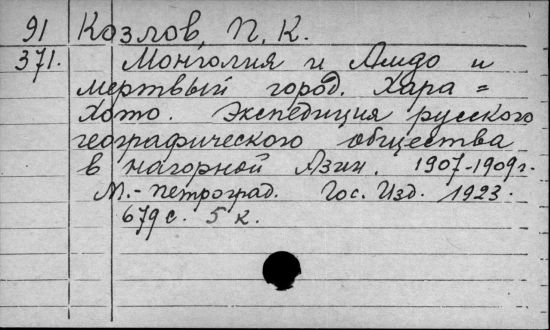 91 Козлов, П. К.
371. Монголия и Амдо и
мертвый город. Хара=
Хото. Экспедиция русского
географического общества
в нагорной Азии. 1907-1909г.
М.-Петроград. Гос. Изд. 1923.
679 с. 5 к.